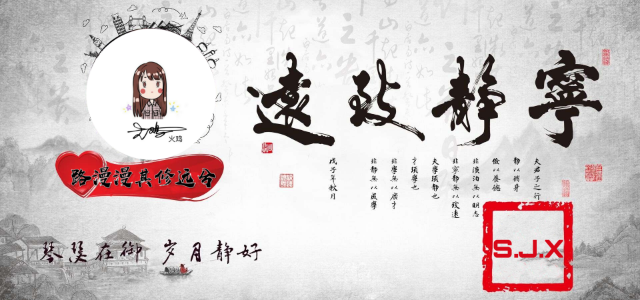 寧靜致遠
夫君子之行
靜以修身
儉以養德
非澹泊無以明志
非寧靜無以致遠
夫學須靜也
才須學也
非學無以廣才
非靜無以成學
戊子年秋月
火鸡
路漫漫其修远兮
琴瑟在御 岁月静好
S.J.X